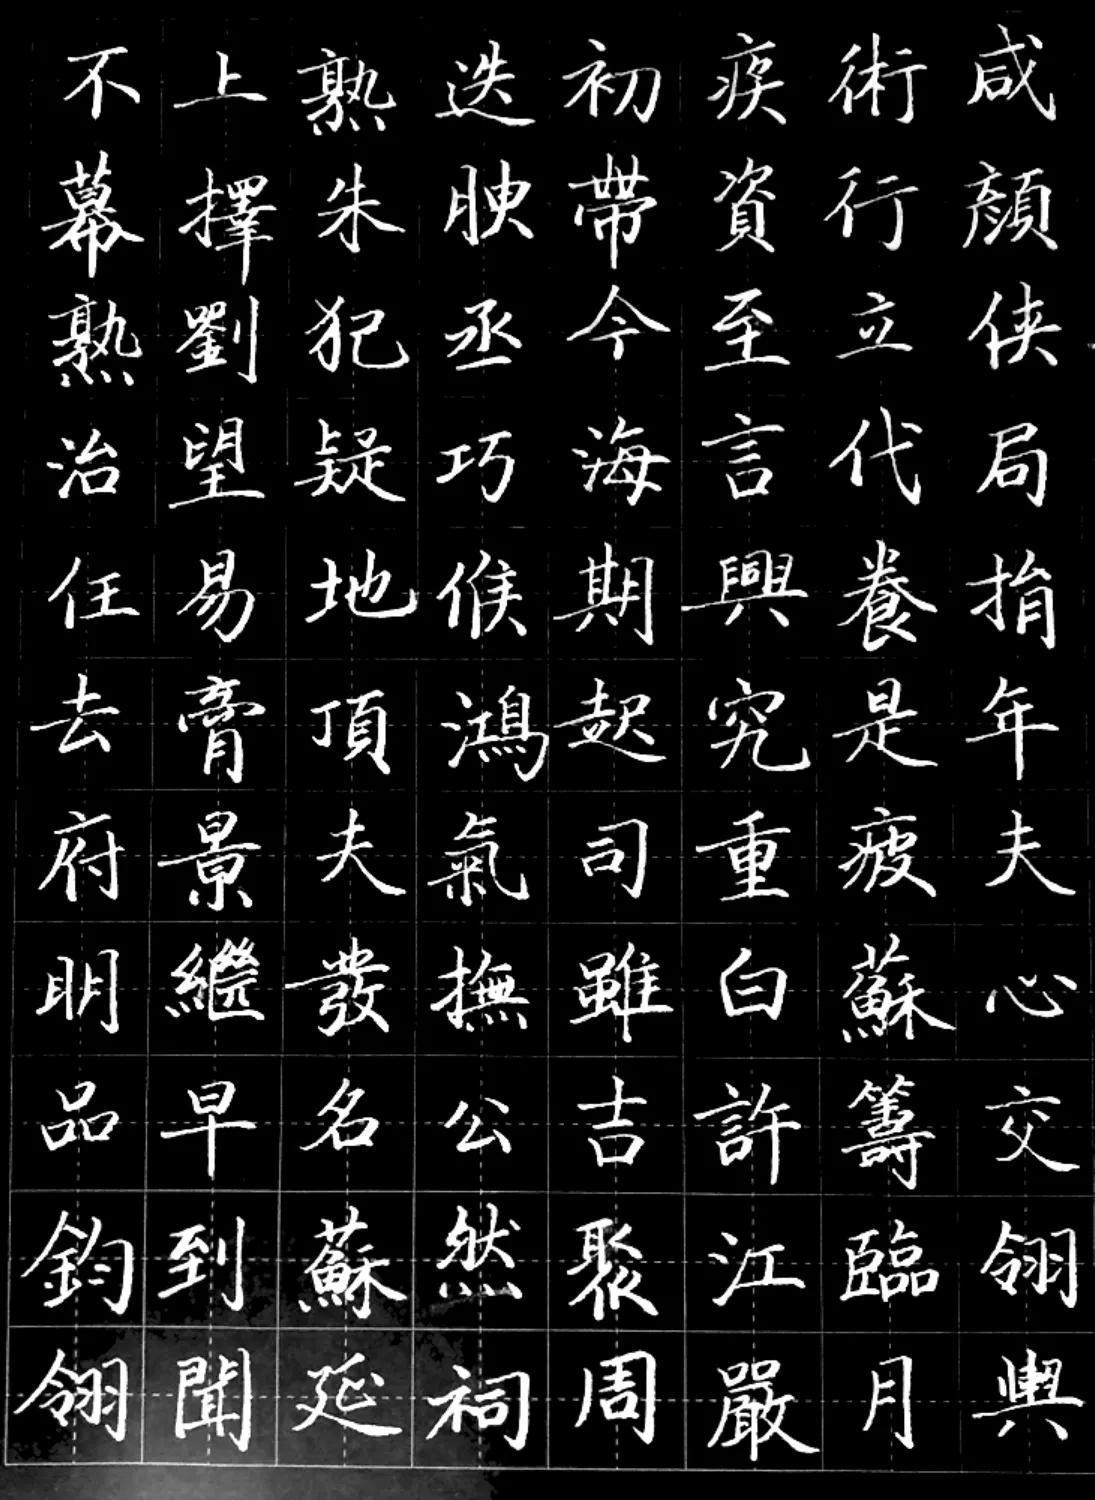 咸顏俠局捐年夫心交翎輿
術行立代養是疲蘇籌臨月
疾資至言興究重白許江嚴
初帶今海期起司雖吉聚周
迭腴丞巧候鴻氣撫公然祠
熟朱犯疑地頂夫發名蘇延
上擇劉望易膏景繼早到聞
不幕熟治任去府明品鈞翎